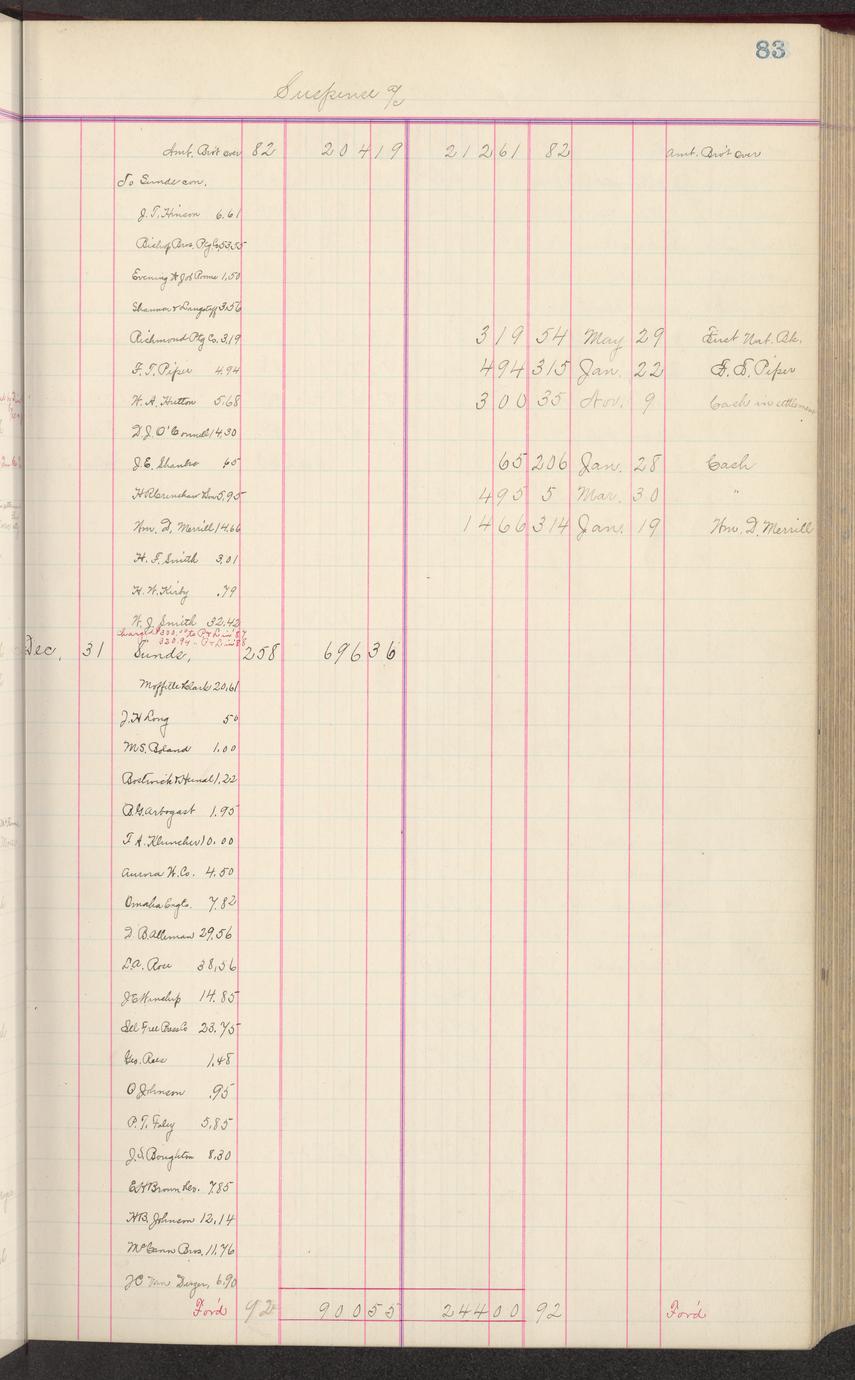 83
Suspense a/c
Amt. Bro't over 82 204 19 212 61 82 Amt. Bro't over
To Sunds con.
J. T. Hinson 6.61
Bishop Bros. Ptg Co. 53.55
Evening & Job 1.50
Shannon & 3.56
Richmond Ptg Co. 3.19 3 19 54 May 29 First Nat. Bk.
F. T. Piper 4.94 4 94 315 Jan. 22 F. T. Piper
W. A. Hutton 5.68 3 00 35 Nov. 9 Cash in settlement
D. J. O'Connell 14.30
J. E. Shanks 65 65 206 Jan. 28 Cash
H R Crenshaw 5.95 4 95 5 Mar. 30 "
Wm. D. Merrill 14.66 14 66 314 Jan. 19 Wm. D. Merrill
H. F. Smith 3.01
H. W. Kirby .79
W. J. Smith 32.42
Dec. 31 Sunds, 258 696 36
Moffitt & Clark 20.61
J. H Long 50
M. S. Boland 1.00
Bostwick & 1.22
B. G. Arbogast 1.95
F. A. 10.00
Aurora W. Co. 4.50
Omaha 7.82
D. B. Alleman 29.56
L. A. Rose 38.56
J E Winship 14.85
Sel Free Press Co 23.75
Geo. Rees 1.48
O Johnson .95
P. T. Foley 5.85
J. S. Boughton 8.30
E H Brown 7.85
H B. Johnson 12.14
McCann Bros. 11.76
J C Van 6.90
For'd 92 900 55 244 00 92 For'd